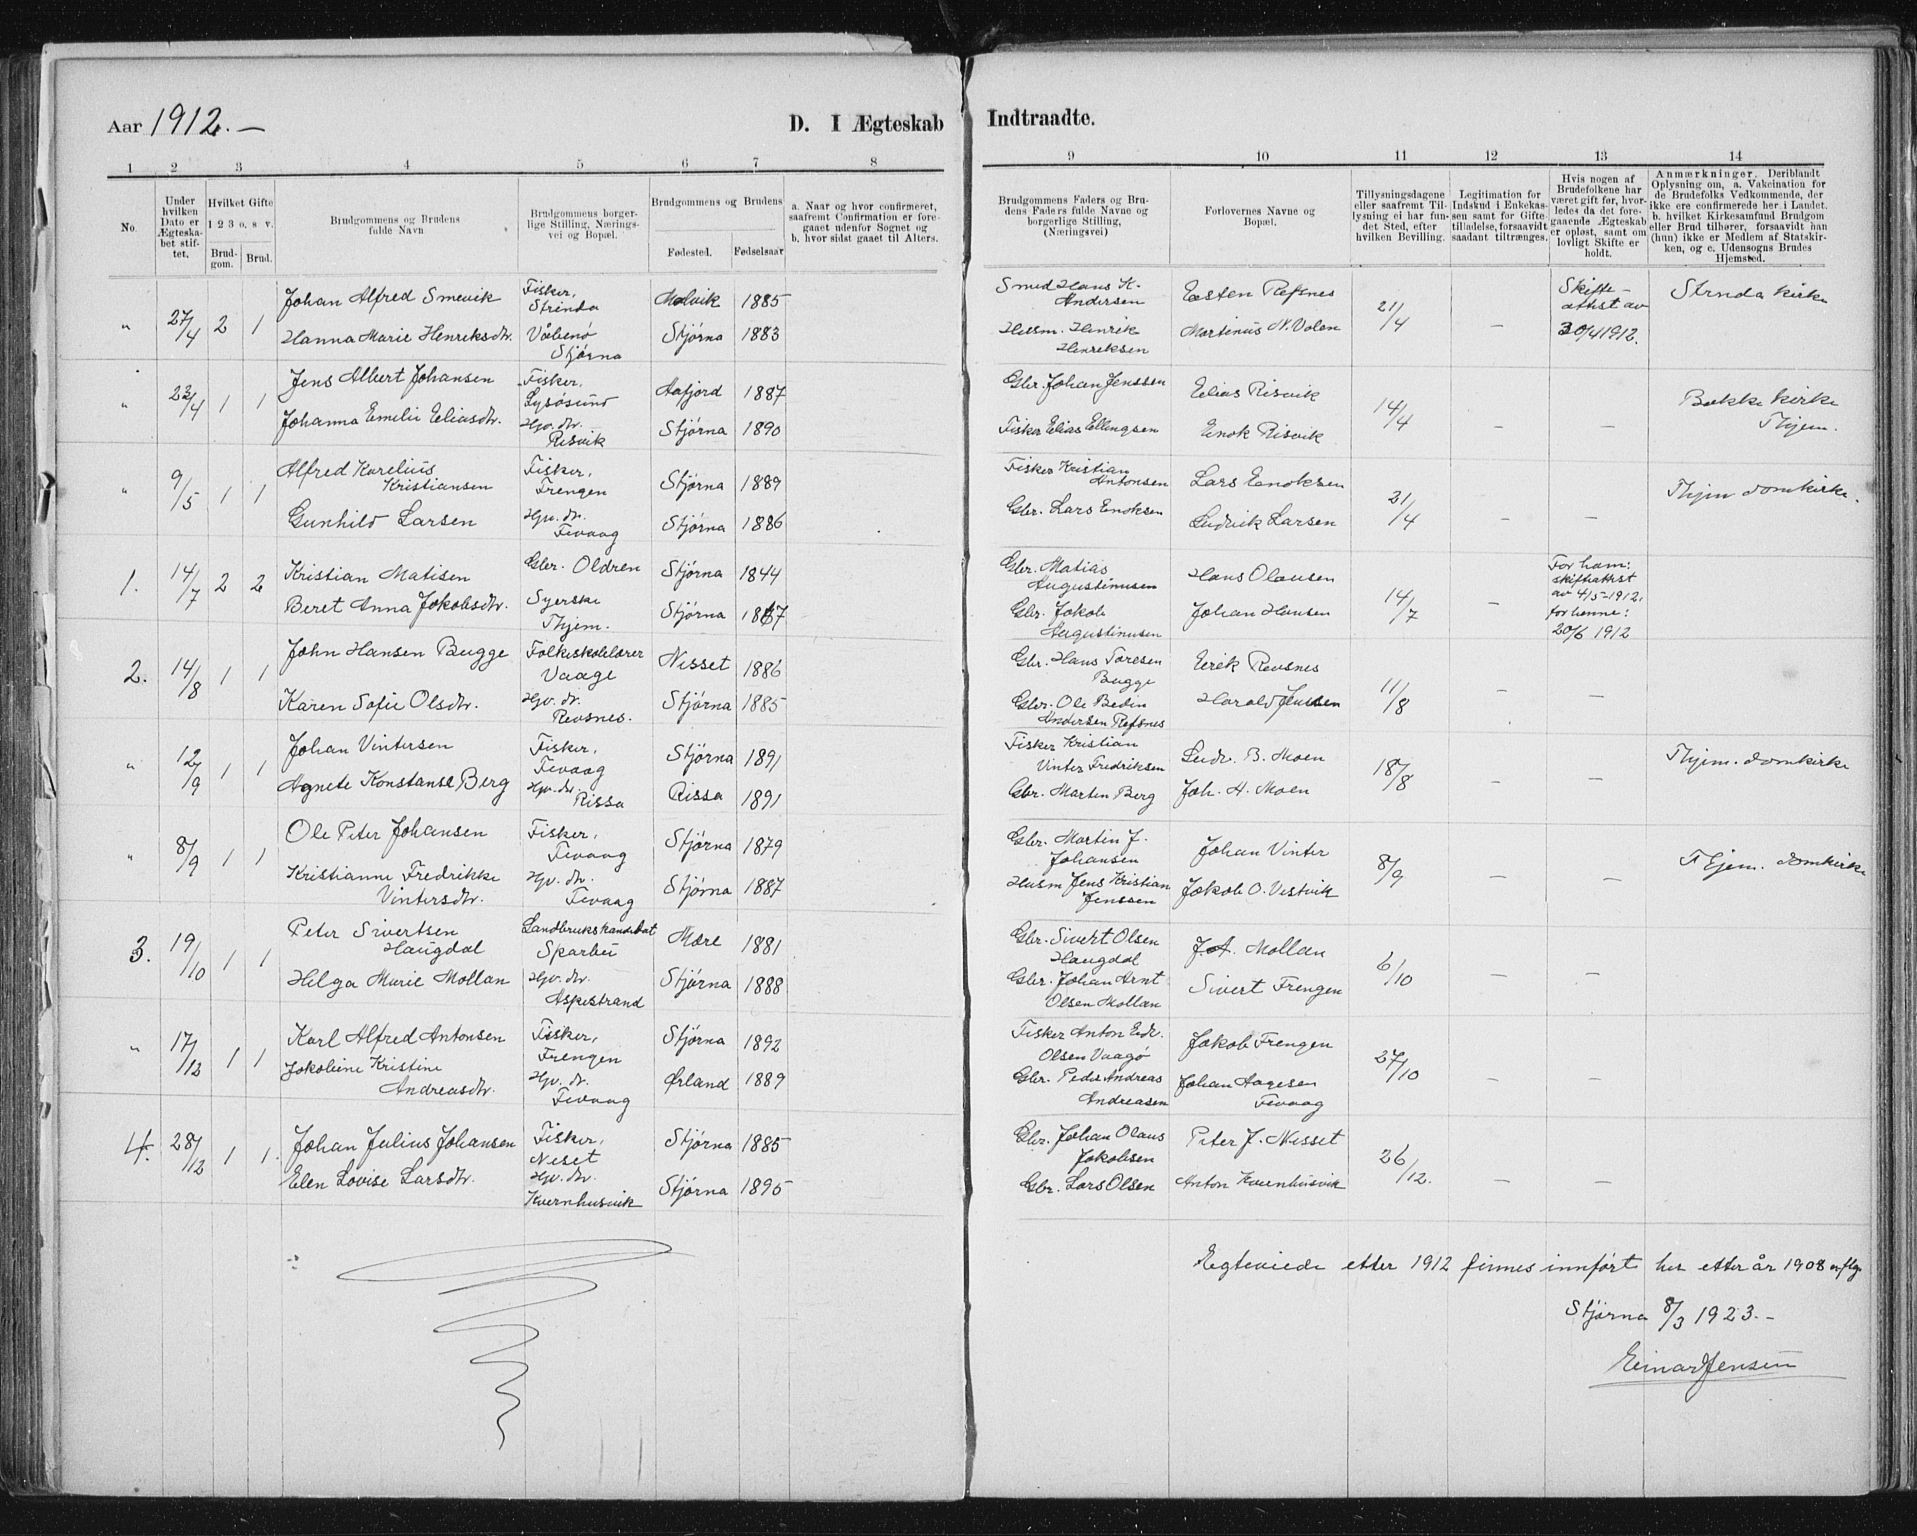 Aar 1912.—
D. I Ægteskab Indtraadte.
1 2 3 4 5 6 7 8 9 10 11 12 13 14
No.
Under hvilken Dato er Ægteskabet stiftet.
Hvilket Gifte
1 2 3 o. s v.
Brudgom. Brud.
Brudgommens og Brudens fulde Navn
Brudgommens borgerlige Stilling, Næringsvei og Bopæl.
Brudgommens og Brudens
Fødested. Fødselsaar
a. Naar og hvor confirmeret, saafremt Confirmation er foregaaet udenfor Sognet og
b. hvor sidst gaaet til Alters.
Brudgommens Faders og Brudens Faders fulde Navne og borgerlige Stilling, (Næringsvei)
Forlovernes Navne og Bopæl.
Tillysningsdagene eller saafremt Tillysning ei har fundet Sted, efter hvilken Bevilling.
Legitimation for Indskud i Enkekassen samt for Giftetilladelse, forsaavidt saadant tiltrænges.
Hvis nogen af Brudefolkene har været gift før, hvorledes da det foregaaende Ægteskab er opløst, samt om lovligt Skifte er holdt.
Anmærkninger. Deriblandt Oplysning om, a. Vakcination for de Brudefolks Vedkommende, der ikke ere confirmerede her i Landet. b. hvilket Kirkesamfund Brudgom eller Brud tilhører, forsaavidt han (hun) ikke er Medlem af Statskirken, og c. Udensogns Brudes Hjemsted.
" 27/4 2 1 Johan Alfred Smevik Fisker, Strinda Malvik 1885 Smed Hans K. Andersen Esten Refsnes 21/4 – Skifteattest av 30/4 1912. Strnda kirke
Hanna Marie Henriksdtr. Vælenø Stjørna Stjørna 1883 Husm. Henrik Henriksen Martinus N. Volen
" 23/4 1 1 Jens Albert Johansen Fisker, Lysøsund Aafjord 1887 Gbr. Johan Jenssen Elias Risvik 14/4 – – Bakke kirke Thjem.
Johanna Emilie Eliasdtr. Hjv. dtr. Risvik Stjørna 1890 Fisker Elias Ellingsen Enok Risvik
" 9/5 1 1 Alfred Karelius Kristiansen Fisker, Frengen Stjørna 1889 Fisker Kristian Antonsen Lars Enoksen 21/4 – – Thjem domkirke.
Gunhild Larsen Hjv. dr. Fevaag Stjørna 1886 Gbr. Lars Enoksen Ludvik Larsen
1. 14/7 2 2 Kristian Matisen Gbr. Oldren Stjørna 1844 Gbr. Matias Augustinusen Hans Olausen 14/7 – For ham: skifteattest av 4/5-1912, for henne: 20/6 1912
Beret Anna Jakobsdtr. Syerske Thjem. Stjørna 1867 Gbr. Jakob Augustinusen Johan Hansen
2. 14/8 1 1 John Hansen Bugge Folkeskolelærer Vaage Nesset 1886 Gbr. Hans Toresen Bugge Eirik Revsnes 11/8 – –
Karen Sofie Olsdtr. Hjv. dr. Revsnes. Stjørna 1885 Gbr. Ole Bedin Andersen Refsnes Harald Jenssen
" 12/9 1 1 Johan Vintersen Fisker, Fevaag Stjørna 1891 Fisker Kristian Vinter Fredriksen Ludv. B. Moen 18/8 – – Thjem. domkirke
Agnete Konstanse Berg Hjv. dr. Rissa Rissa 1891 Gbr. Martin Berg Joh. A. Moen
" 8/9 1 1 Ole Peter Johansen Fisker, Fevaag Stjørna 1879 Gbr. Martin J. Johansen Johan Vinter 8/9 – – Thjem. domkirke
Kristianne Fredrikke Vintersdtr. Hjv. dr. Fevaag Stjørna 1887 Husm Jens Kristian Jenssen Jakob O. Vestvik
3. 19/10 1 1 Peter Sivertsen Haugdal Landbrukskandidat Sparbu Mære 1881 Gbr. Sivert Olsen Haugdal J. A. Mollan 6/10 – –
Helga Marie Mollan Hjv. dr. Aspestrand Stjørna 1888 Gbr. Johan Arnt Olsen Mollan Sivert Frengen
" 17/12 1 1 Karl Alfred Antonsen Fisker, Frengen Stjørna 1892 Fisker Anton Edv. Olsen Vaagø Jakob Frengen 27/10 – –
Jakobine Kristine Andreasdtr. Hjv. dr. Fevaag Ørland 1889 Gbr. Peder Andreas Andreasen Johan Aagesen Fevaag
4. 28/12 1 1. Johan Julius Johansen Fisker, Neset Stjørna 1885 Gbr. Johan Olaus Jakobsen Peter J. Nesset 26/12. – –
Elen Lovise Larsdtr. Hjv. dr. Kvernhusvik Stjørna 1895 Gbr. Lars Olsen Anton Kvernhusvik
Egteviede etter 1912 finnes innført her etter år 1908
Stjørna 8/3 1923.–
Einar Jensen